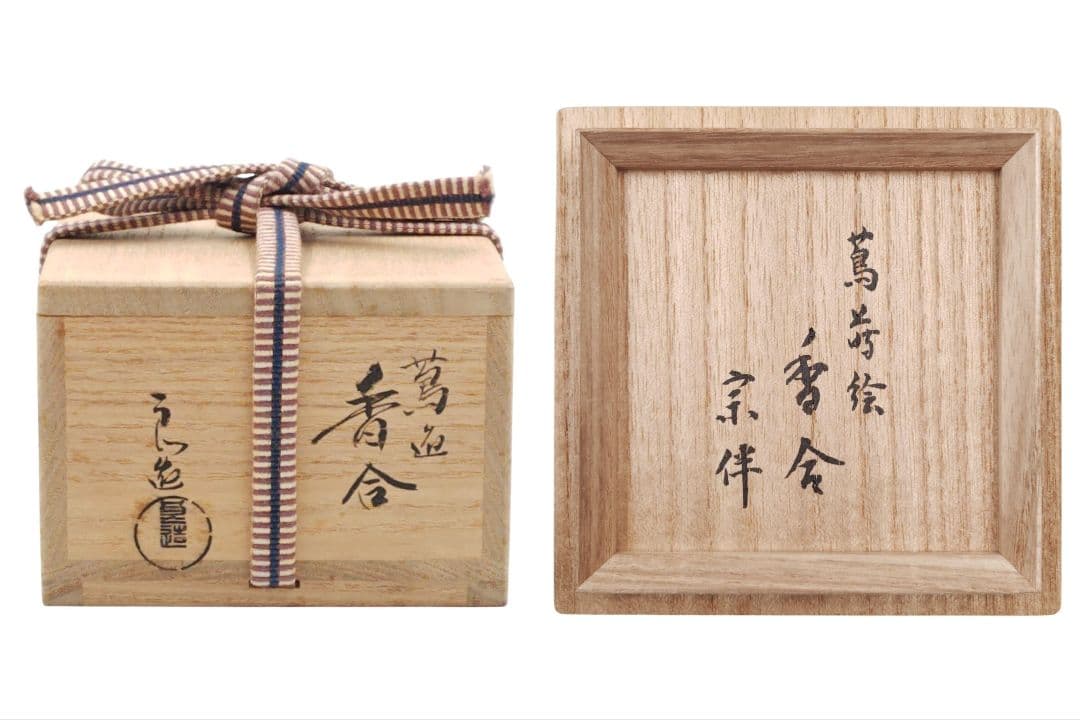 蔦迺
香合
造
蔦蒔絵
香合
宗伴